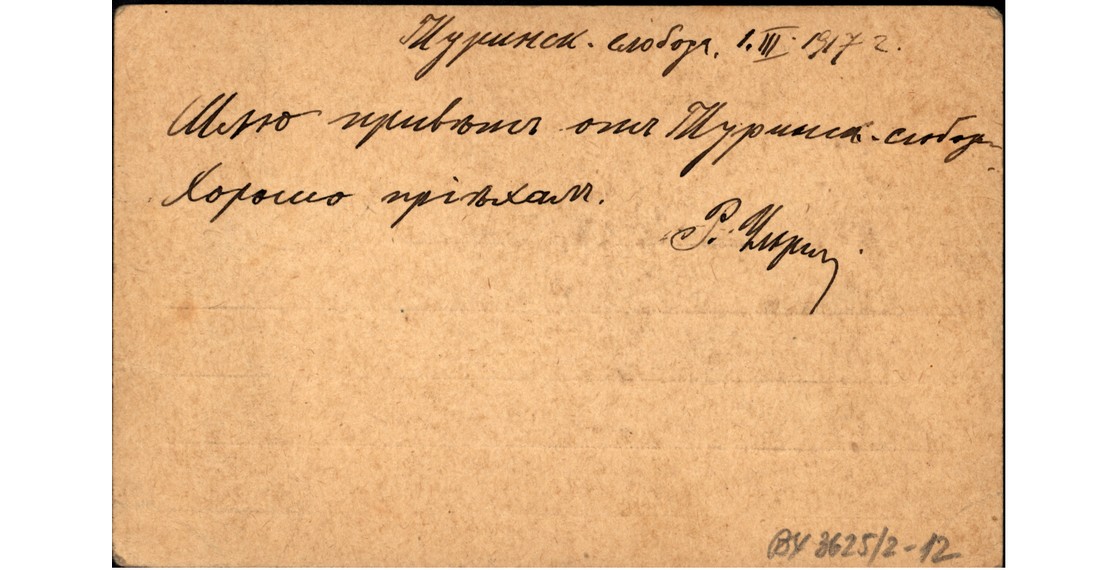 Туринск. слобода, 1.III. 1917 г.
Шлю привѣтъ отъ Туринск.-слобод-
Хорошо пріѣхалъ.
Р.
ВУ 3625/2-12